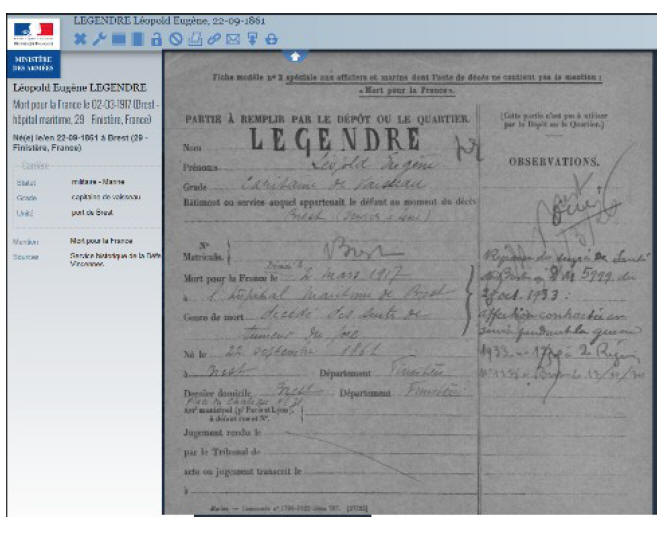 LEGENDRE Léopold Eugène, 22-09-1861
MINISTÈRE
DES ARMÉES
Léopold Eugène LEGENDRE
Mort pour la France le 02-03-1917 (Brest -
hôpital maritime, 29 - Finistère, France)
Né(e) le/en 22-09-1861 à Brest (29 -
Finistère, France)
Carrière
Statut militaire - Marine
Grade capitaine de vaisseau
Unité port de Brest
Mention Mort pour la France
Sources Service historique de la Défe
Vincennes
Fiche modèle nº 2 spéciale aux officiers et marins dont l'acte de décès ne contient pas la mention :
« Mort pour la France ».
PARTIE À REMPLIR PAR LE DÉPÔT OU LE QUARTIER.
Nom LEGENDRE
Prénoms Léopold Eugène
Grade Capitaine de Vaisseau
Bâtiment ou service auquel appartenait le défunt au moment du décès
Brest (service à terre)
Nº
Matricule. Brest
Mort pour la France le 2 mars 1917
à l'hôpital maritime de Brest
Genre de mort décédé des suites de
tumeur du foie
Né le 22 septembre 1861
à Brest Département Finistère
Dernier domicile Brest Département Finistère
arrt municipal (p/ Paris et Lyon),
à défaut rue et Nº.
Jugement rendu le
par le Tribunal de
acte ou jugement transcrit le
à
(Cette partie n'est pas à utiliser
par le Dépôt ou le Quartier.)
OBSERVATIONS.
Réponse du service de Santé
28 oct. 1933 :
affection contractée en
service pendant la guerre